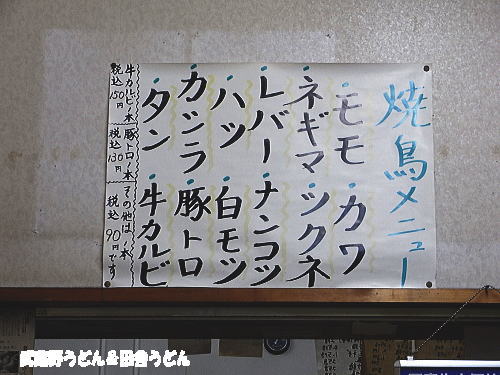 焼鳥メニュー
モモ
カワ
ネギマ
ツクネ
レバー
ナンコツ
ハツ
白モツ
カシラ
豚トロ
タン
牛カルビ
牛カルビ1本
税込150円
豚トロ1本
税込130円
その他は1本
税込90円です
武蔵野うどん&田舎うどん